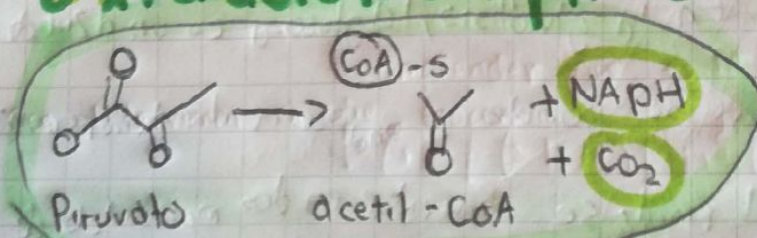 CoA-S
+ NADH
+ CO₂
Piruvato acetil-CoA